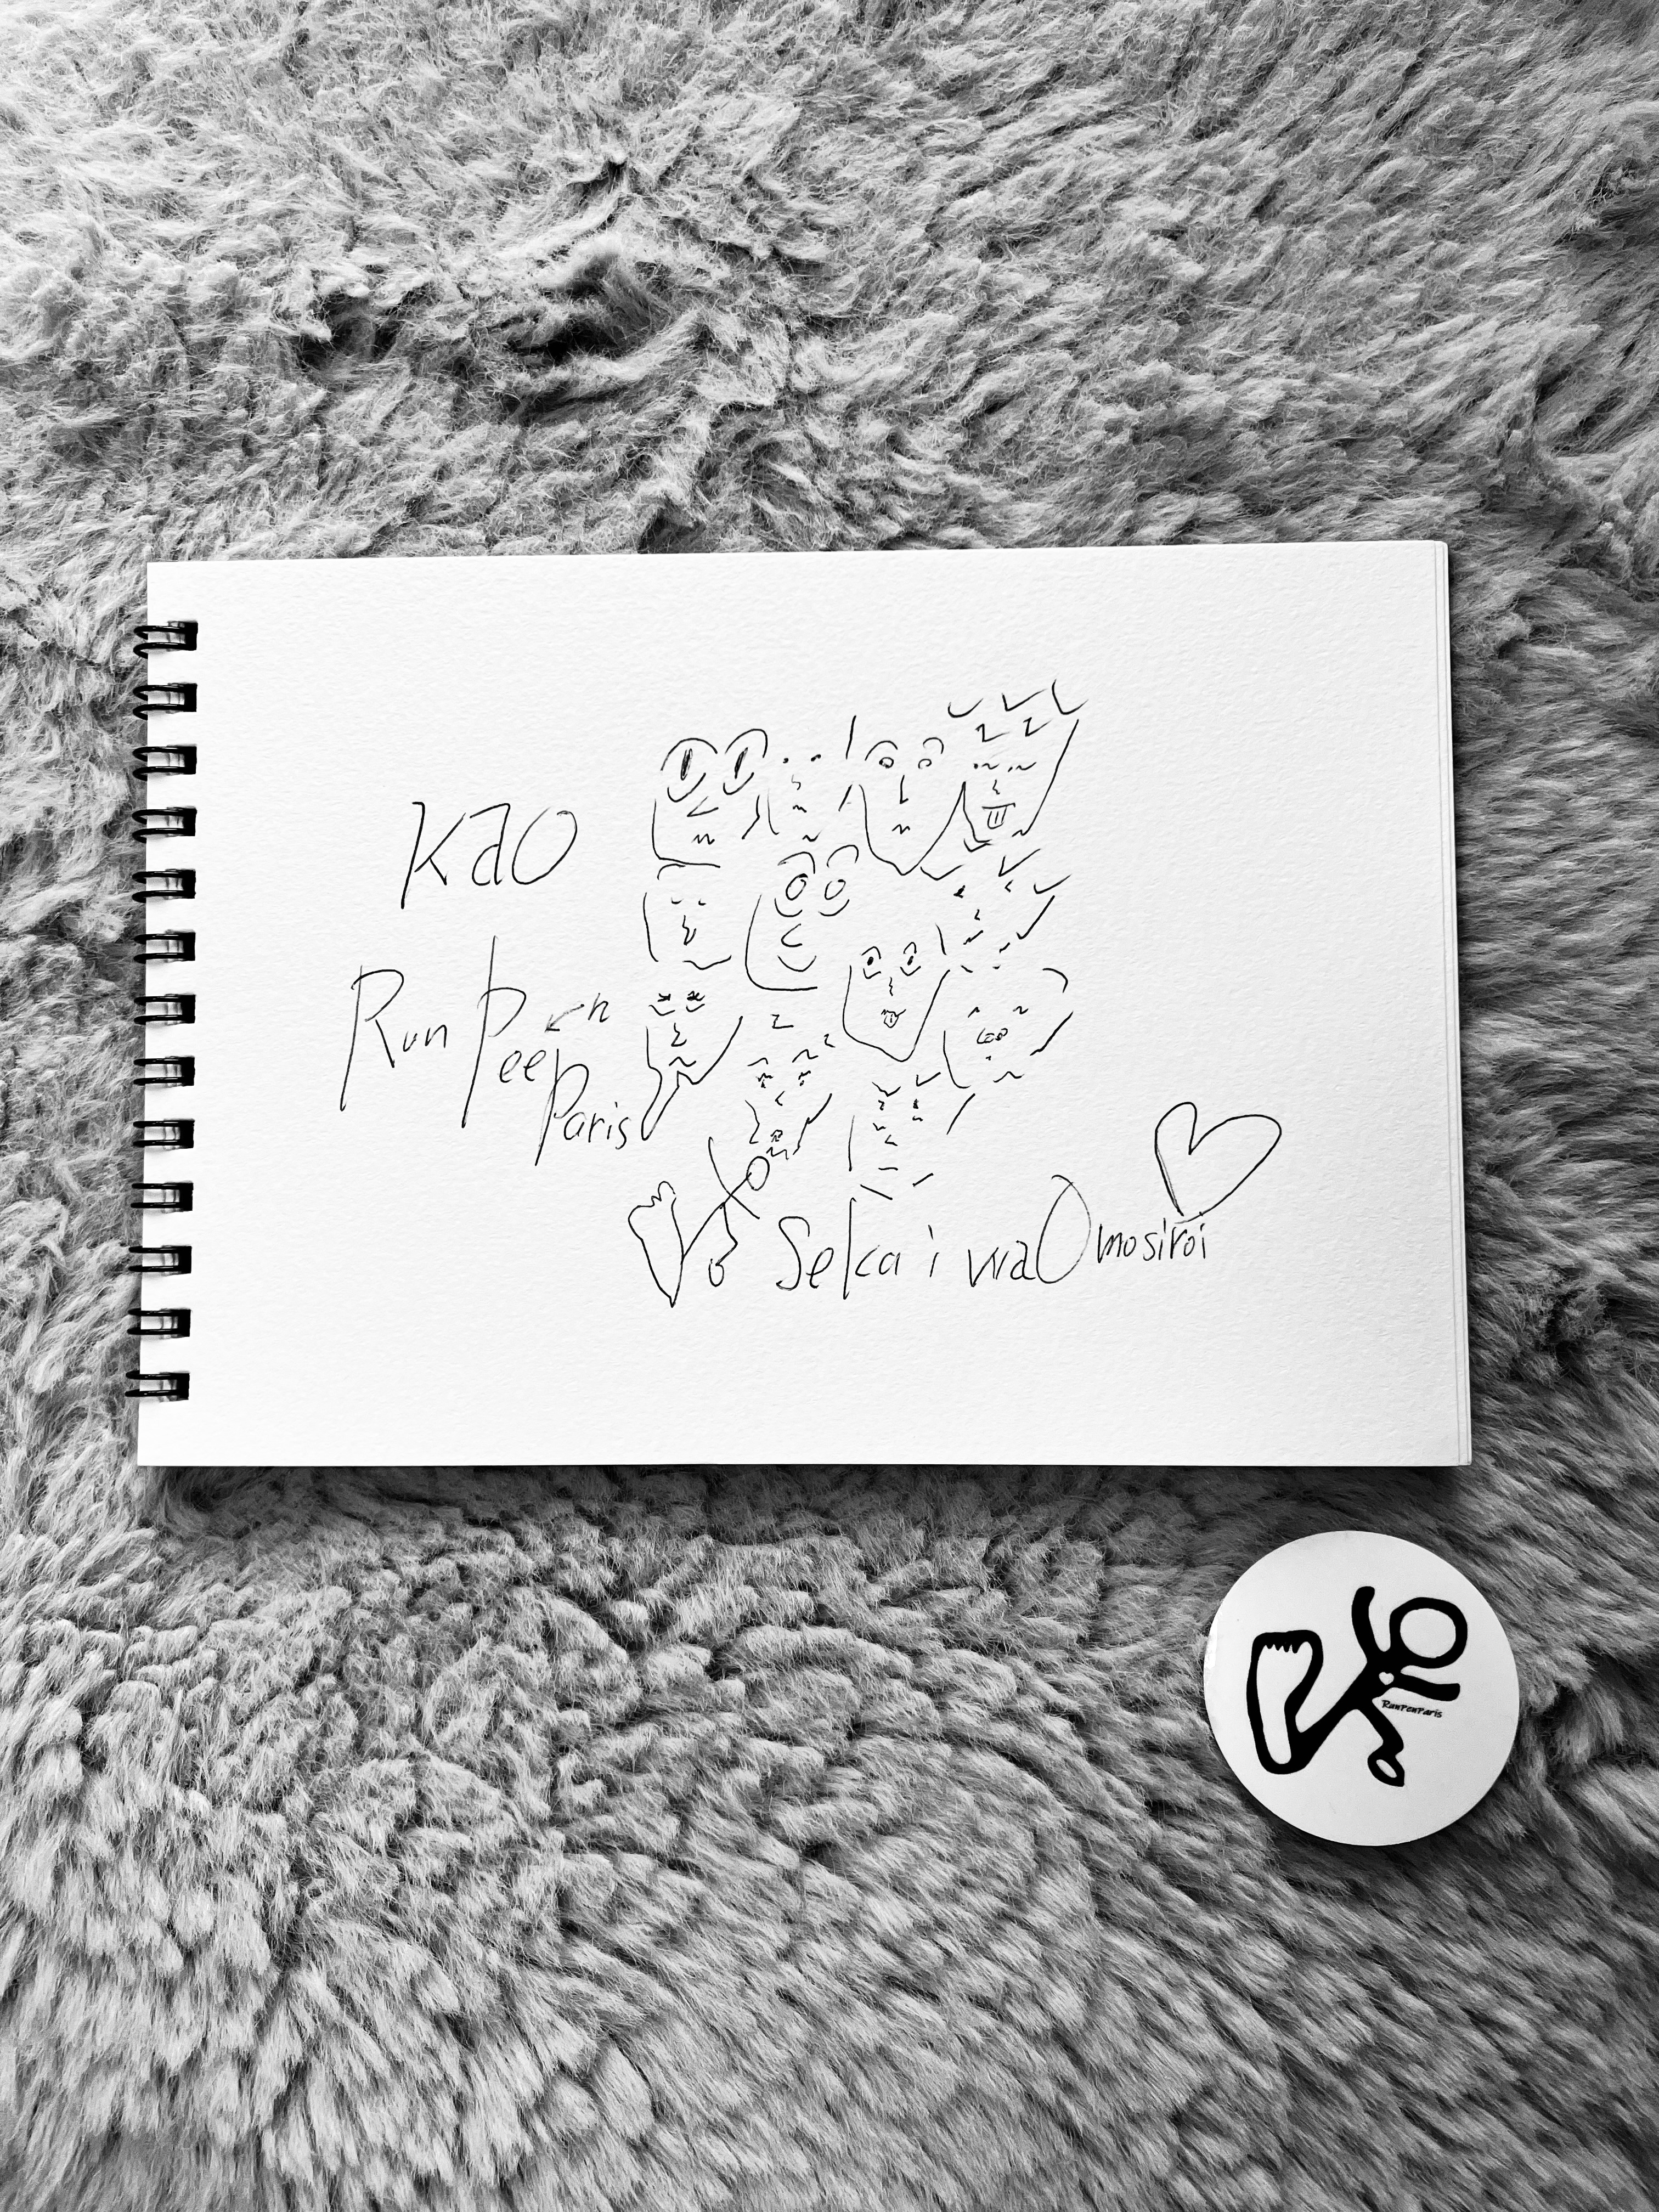 Kao
Run Peen
Paris
Sekai wa Omosiroi
RunPenParis